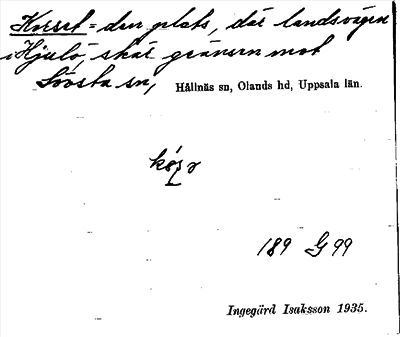 Korset = den plats, där landsvägen
i Hjulö, skär gränsen mot
Lövsta sn, Hållnäs sn, Olands hd, Uppsala län.
189 G 99
Ingegärd Isaksson 1935.